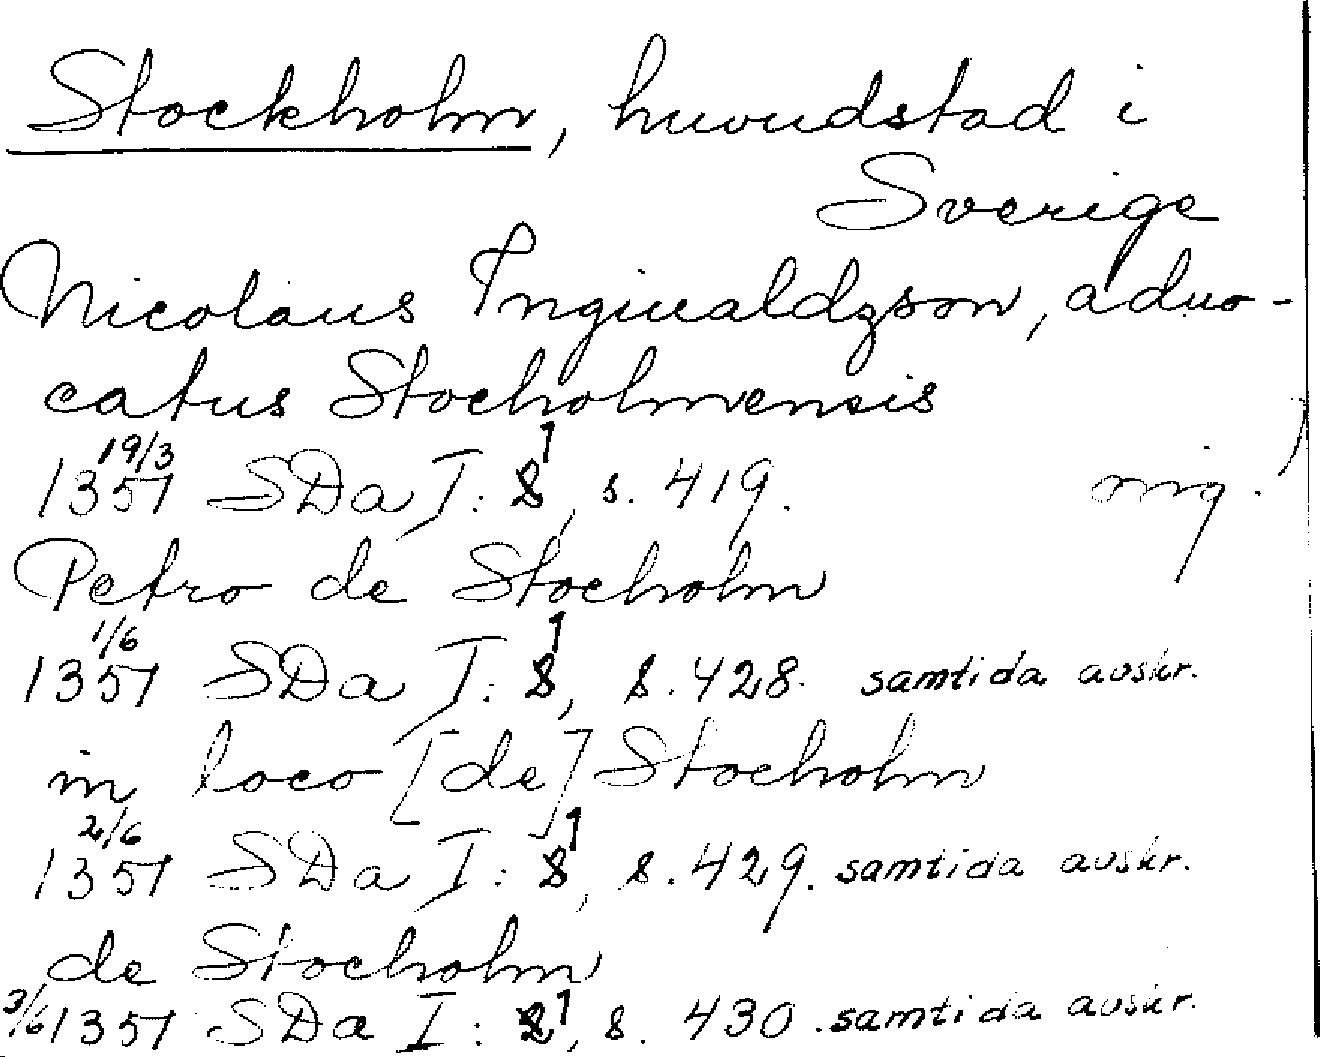 Stockholm, huvudstad i
Sverige
Nicolaus Ingiualdzson, aduo-
catus Stocholmensis
19/3
1357 SDa I: 1, s. 419.
Petro de Stocholm
1/6
1357 SDa I: 1, s. 428. samtida avskr.
in loco [de] Stocholm
2/6
1357 SDa I: 1, s. 429. samtida avskr.
de Stocholm
3/6 1357 SDa I: 1, s. 430. samtida avskr.